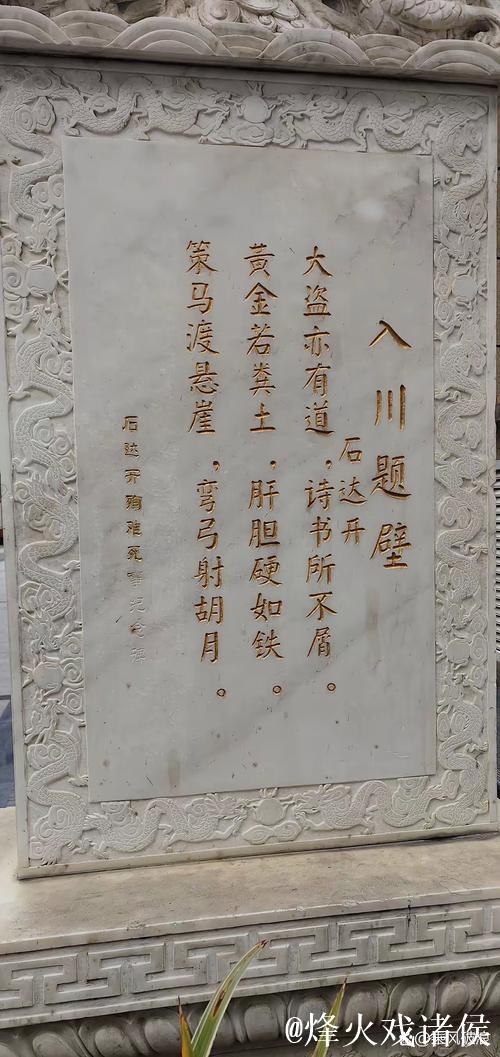 入川题壁
石达开
大盗亦有道，诗书所不屑。
黄金若粪土，肝胆硬如铁。
策马渡悬崖，弯弓射胡月。
石达开殉难死
@烽火戏诸侯